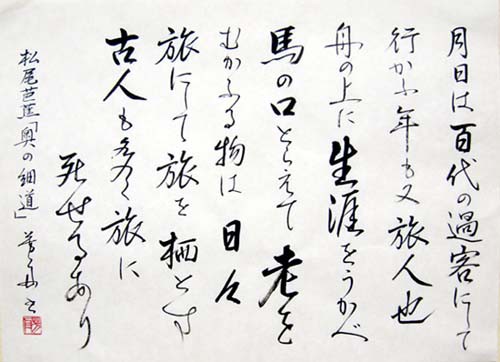 月日は百代の過客にして
行かふ年も又旅人也
舟の上に生涯をうかべ
馬の口とらえて老を
むかふる物は日々
旅にして旅を栖とす
古人も多く旅に
死せるあり
松尾芭蕉「奥の細道」